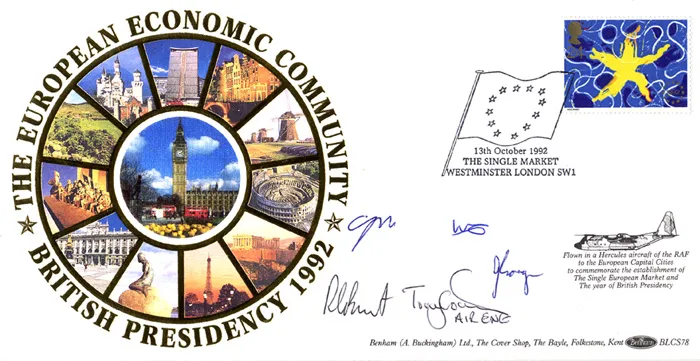 THE EUROPEAN ECONOMIC COMMUNITY
BRITISH PRESIDENCY 1992
13th October 1992
THE SINGLE MARKET
WESTMINSTER LONDON SW1
Flown in a Hercules aircraft of the RAF
to the European Capital Cities
to commemorate the establishment of
The Single European Market and
The year of British Presidency
AIR ENE
Benham (A. Buckingham) Ltd., The Cover Shop, The Bayle, Folkestone, Kent Benham BLCS78